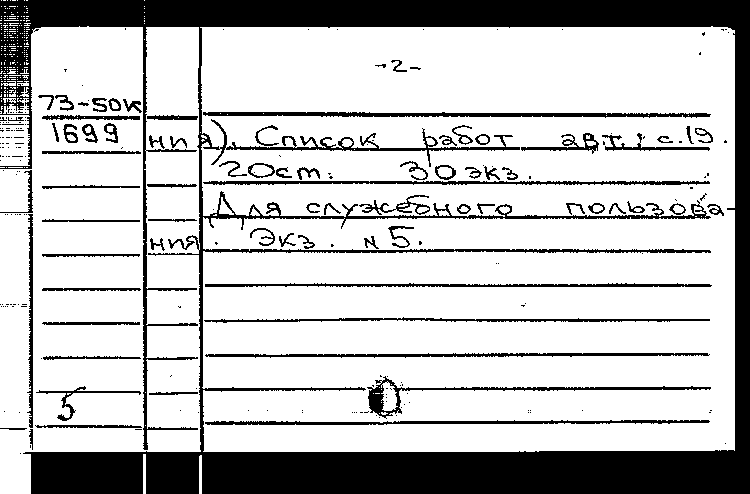 -2-
73-50к
1699 ния). Список работ авт.: с.19.
20см. 30 экз.
Для служебного пользова-
ния. Экз. №5.
5